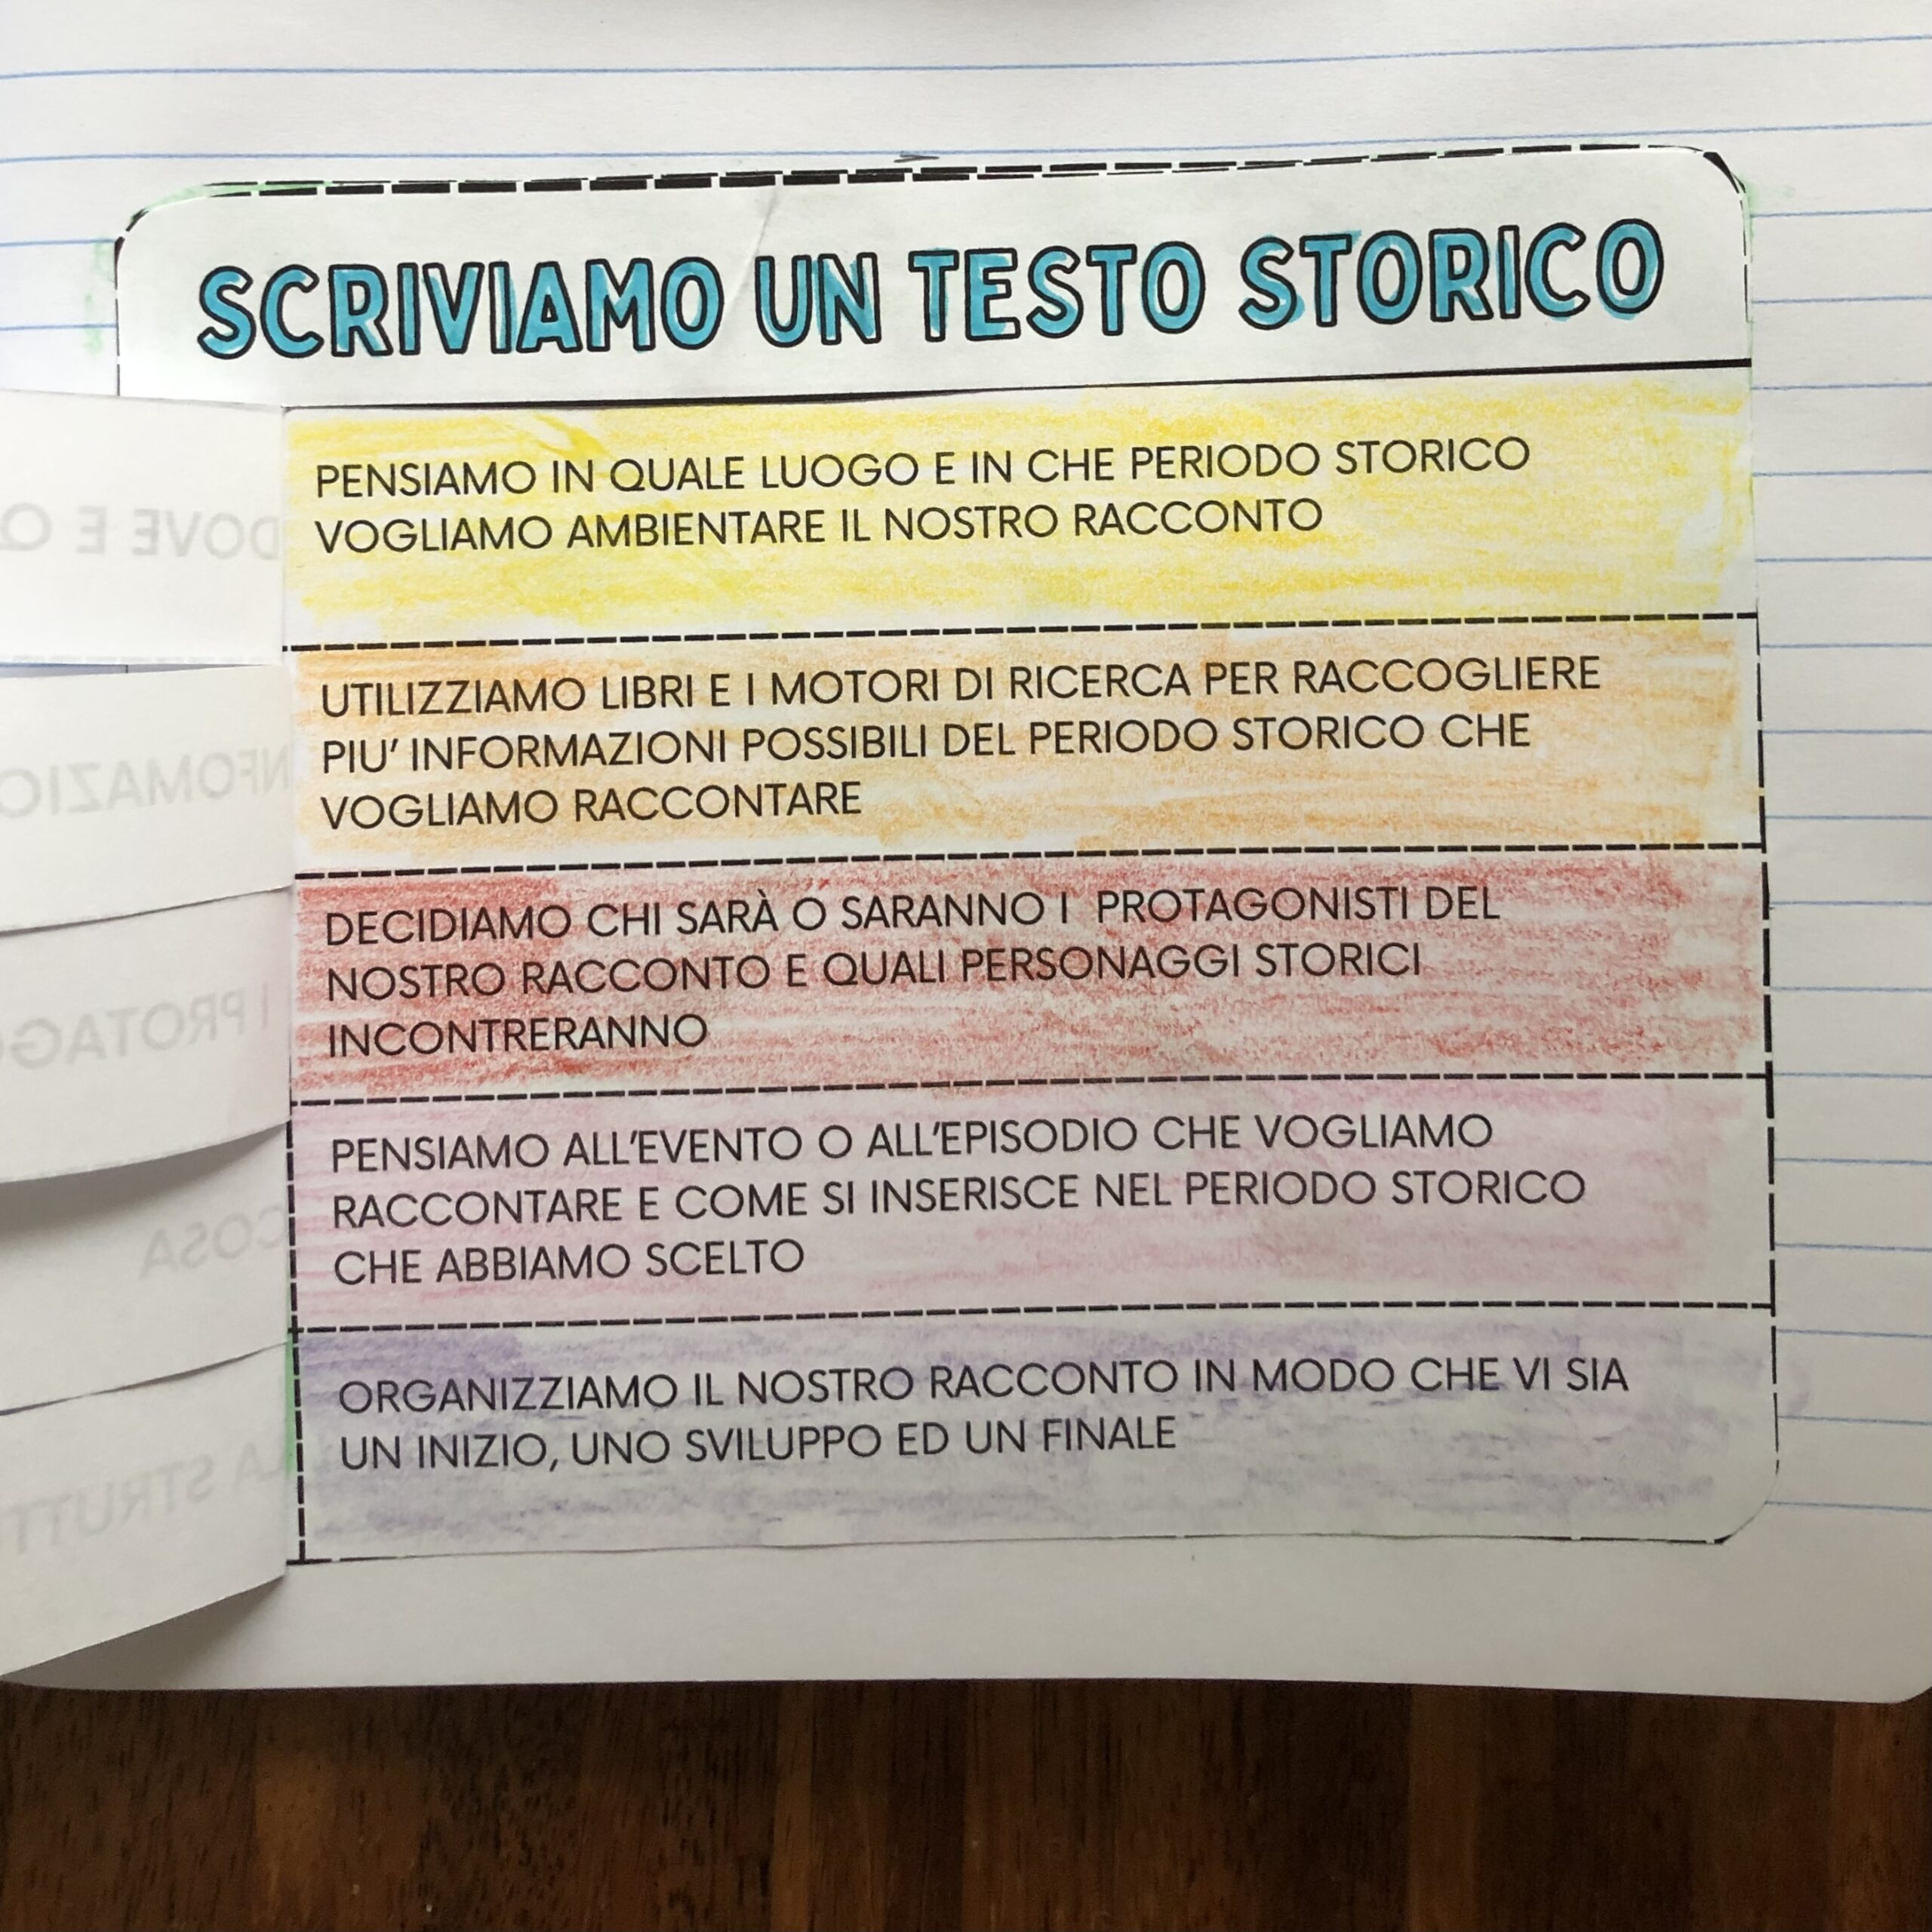 SCRIVIAMO UN TESTO STORICO
PENSIAMO IN QUALE LUOGO E IN CHE PERIODO STORICO
VOGLIAMO AMBIENTARE IL NOSTRO RACCONTO
UTILIZZIAMO LIBRI E I MOTORI DI RICERCA PER RACCOGLIERE
PIU' INFORMAZIONI POSSIBILI DEL PERIODO STORICO CHE
VOGLIAMO RACCONTARE
DECIDIAMO CHI SARÀ O SARANNO I PROTAGONISTI DEL
NOSTRO RACCONTO E QUALI PERSONAGGI STORICI
INCONTRERANNO
PENSIAMO ALL'EVENTO O ALL'EPISODIO CHE VOGLIAMO
RACCONTARE E COME SI INSERISCE NEL PERIODO STORICO
CHE ABBIAMO SCELTO
ORGANIZZIAMO IL NOSTRO RACCONTO IN MODO CHE VI SIA
UN INIZIO, UNO SVILUPPO ED UN FINALE
DOVE E
COSA